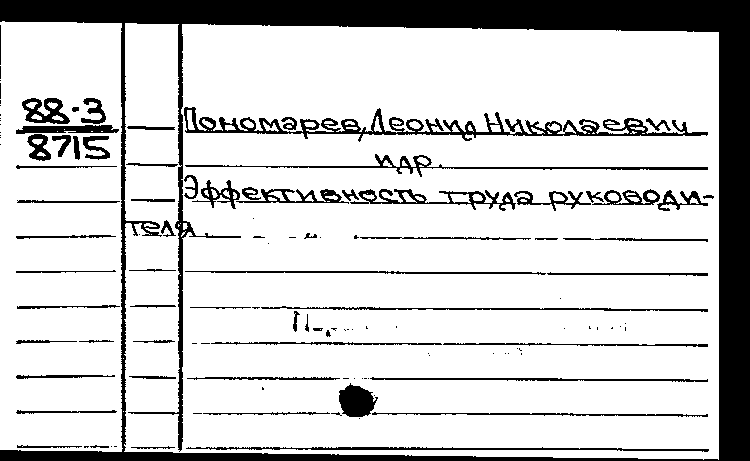 88-3
8715
Пономарев, Леонид Николаевич
и др.
Эффективность труда руководи-
теля.